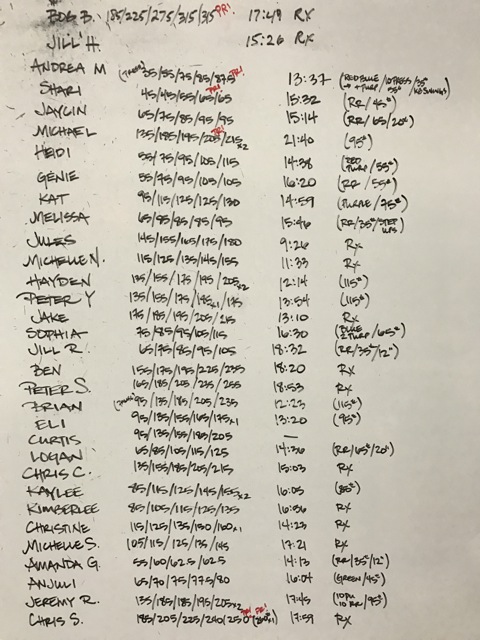 BOB B. 185/225/275/315/315 PR! 17:49 RX
JILL H. 15:26 Rx
ANDREA M 55/55/75/85/875 PR! 13:37
SHARI 45/45/55/65/65 PR! 15:32 (RR/45#)
JAYCIN 65/75/85/95/95 15:14 (RR/65/20")
MICHAEL 135/185/195/205/215x2 PR! 21:40 (95#)
HEIDI 55/75/95/105/115 14:38 (RED PURP/55#)
GENIE 55/75/95/105/105 16:20 (RR/55#)
KAT 95/115/125/125/130 14:59 (PURPLE/75#)
MELISSA 65/85/85/85/95 15:46 (RR/35#/STEP UPS)
JULES 145/155/165/175/180 9:26 Rx
MICHELLE N. 115/125/135/145/155 11:33 Rx
HAYDEN 135/155/175/195/205x2 12:14 (115#)
PETER Y 135/155/175/195x1/175 13:54 (115#)
JAKE 175/185/195/205/215 13:10 Rx
SOPHIA 75/85/95/105/115 16:30 (BLUE 2 PURP/65#)
JILL R. 65/75/85/95/105 18:32 (RR/35#/12")
BEN 155/175/195/225/235 18:20 Rx
PETER S. 165/185/205/225/255 18:53 Rx
BRIAN 95/135/185/205/235 12:23 (115#)
ELI 95/135/155/165/175x1 13:20 (95#)
CURTIS 95/135/155/185/205 —
LOGAN 65/85/105/115/125 14:36 (RR/65#/20")
CHRIS C. 135/155/185/205/215 15:03 Rx
KAYLEE 85/115/125/145/155x2 16:05 (85#)
KIMBERLEE 85/105/115/125/135 16:56 Rx
CHRISTINE 115/125/135/150/160x1 14:23 Rx
MICHELLE S. 105/115/125/135/145 17:21 Rx
AMANDA G. 55/60/62.5/62.5 14:13 (RR/35#/12")
ANJULI 65/70/75/75/80 16:04 (GREEN/45#)
JEREMY R. 135/185/185/195/205x2 17:45 (10PU 10 RR/95#)
CHRIS S. 185/205/225/240/250 PR! PR! 17:59 Rx